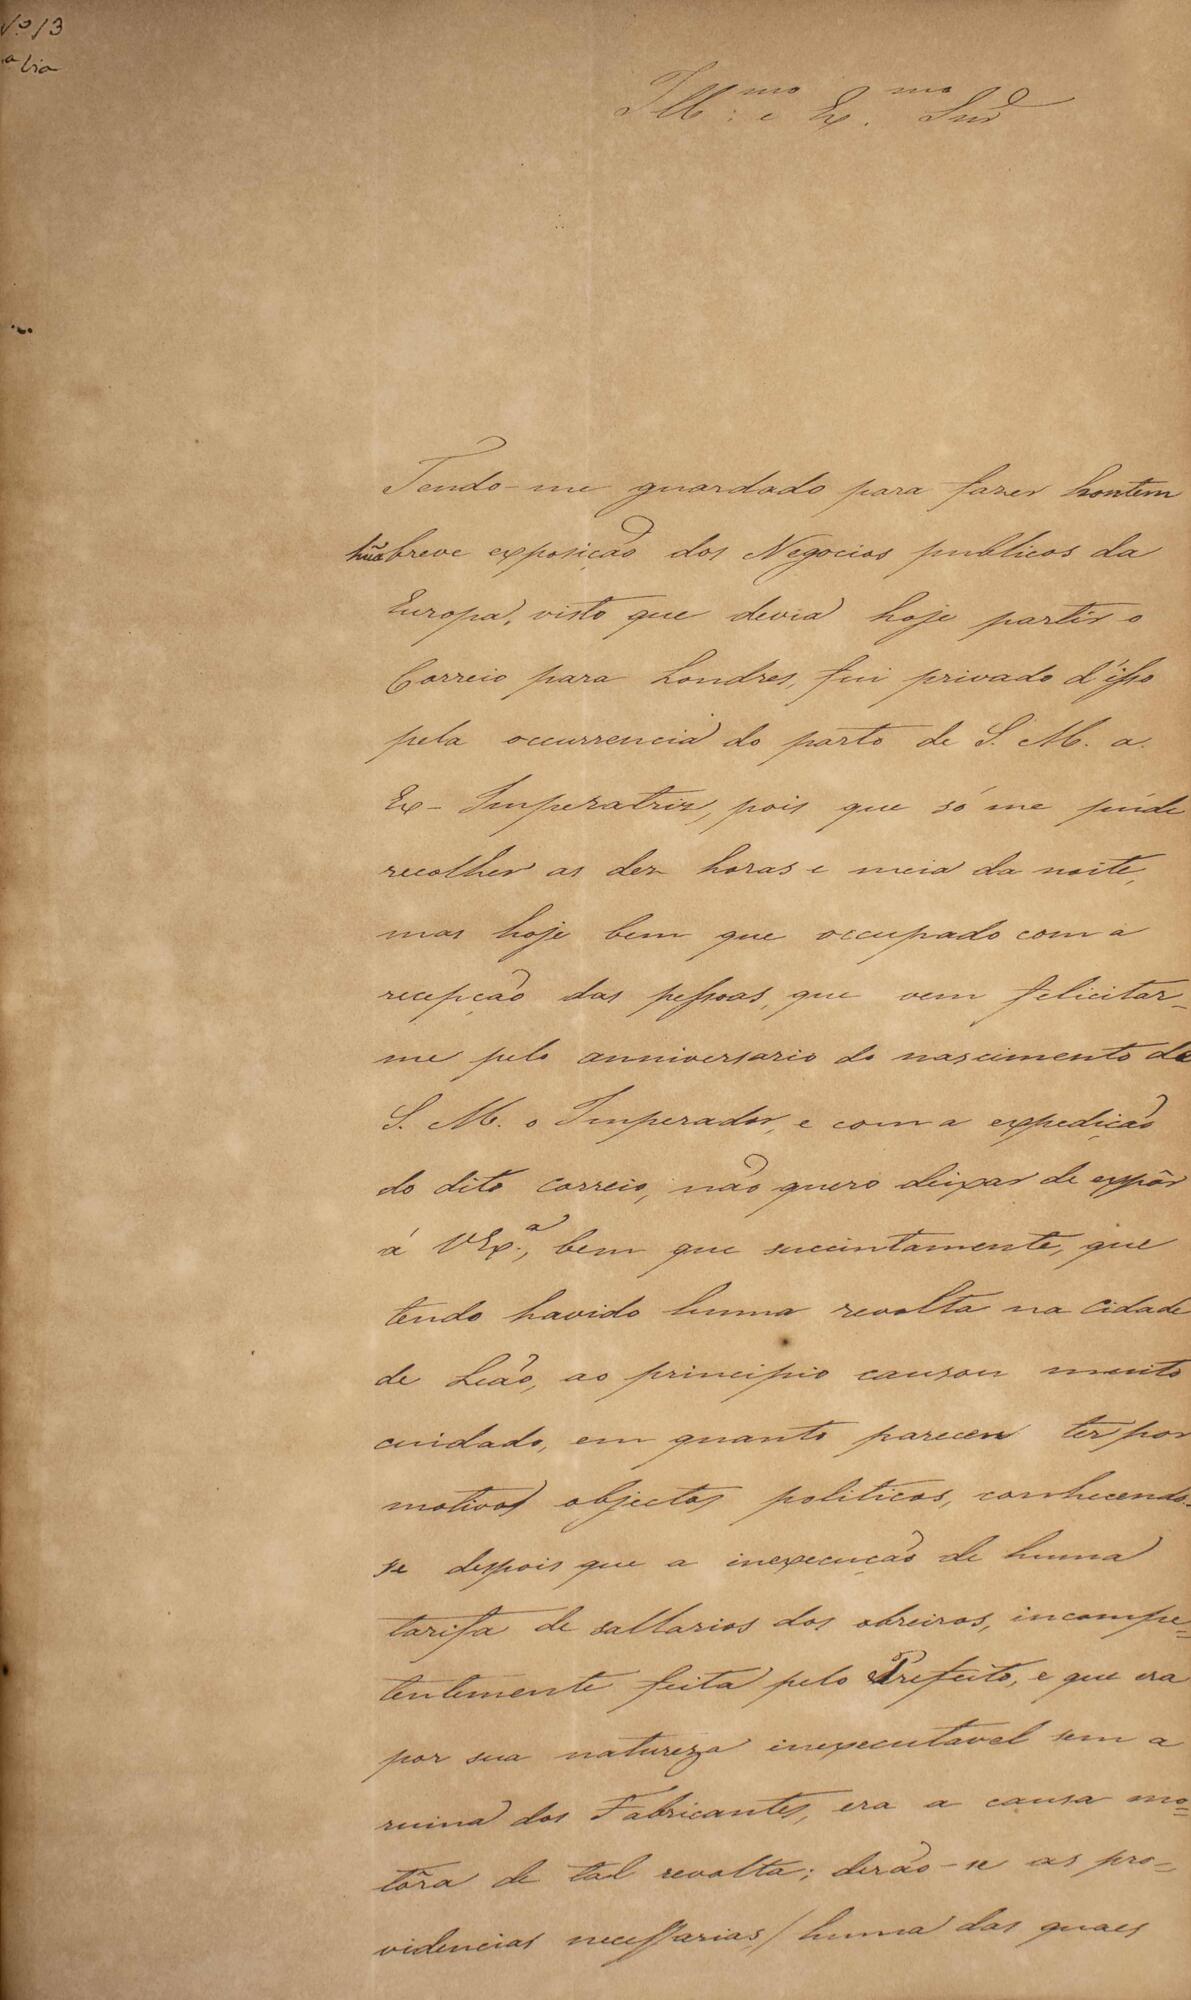 Nº 13
ª Via
Illmo: e Ex.mo Snr
Tendo-me guardado para fazer hontem
hũa breve exposição dos Negocios publicos da
Europa, visto que devia hoje partir o
Correio para Londres, fui privado d'isso
pela occurrencia do parto de S. M. a
Ex-Imperatriz, pois que só me púde
recolher as dez horas e meia da noite,
mas hoje bem que occupado com a
recepção das pessoas, que vem felicitar-
me pelo anniversario do nascimento de
S. M. o Imperador, e com a expedição
do dito correio, não quero deixar de expôr
á VExª., bem que succintamente, que
tendo havido huma revolta na Cidade
de Leão, ao principio causou muito
cuidado, em quanto pareceu ter por
motivos objectos politicos, conhecendo-
se depois que a inexecução de huma
tarifa de sallarios dos obreiros, incompe=
tentemente feita pelo Prefeito, e que era
por sua natureza inexecutavel sem a
ruina dos Fabricantes, era a causa mo=
tôra de tal revolta; derão-se as pro=
videncias necessarias, / huma das quaes